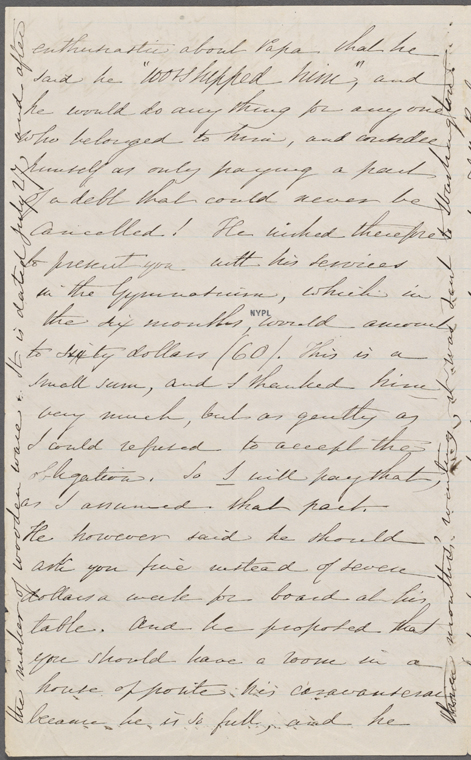 enthusiastic about Papa that he
said he "worshipped him", and
he would do anything for any one
who belonged to him, and consider
himself as only paying a part
of a debt that could never be
cancelled! He wished therefore
to present you with his services
in the Gymnasium, which in
the six months, would amount
to sixty dollars (60). This is a
small sum, and I thanked him
very much, but as gently as
I could refused to accept the
obligation. So I will pay that,
as I assumed that part.
He however said he should
ask you five instead of seven
dollars a week for board at his
table. And he proposed that
you should have a room in a
house opposite his caravanserai
because he is so full, and he
NYPL
the maker of wooden ware. It is dated July 27 and after
months' it was sent to Washington